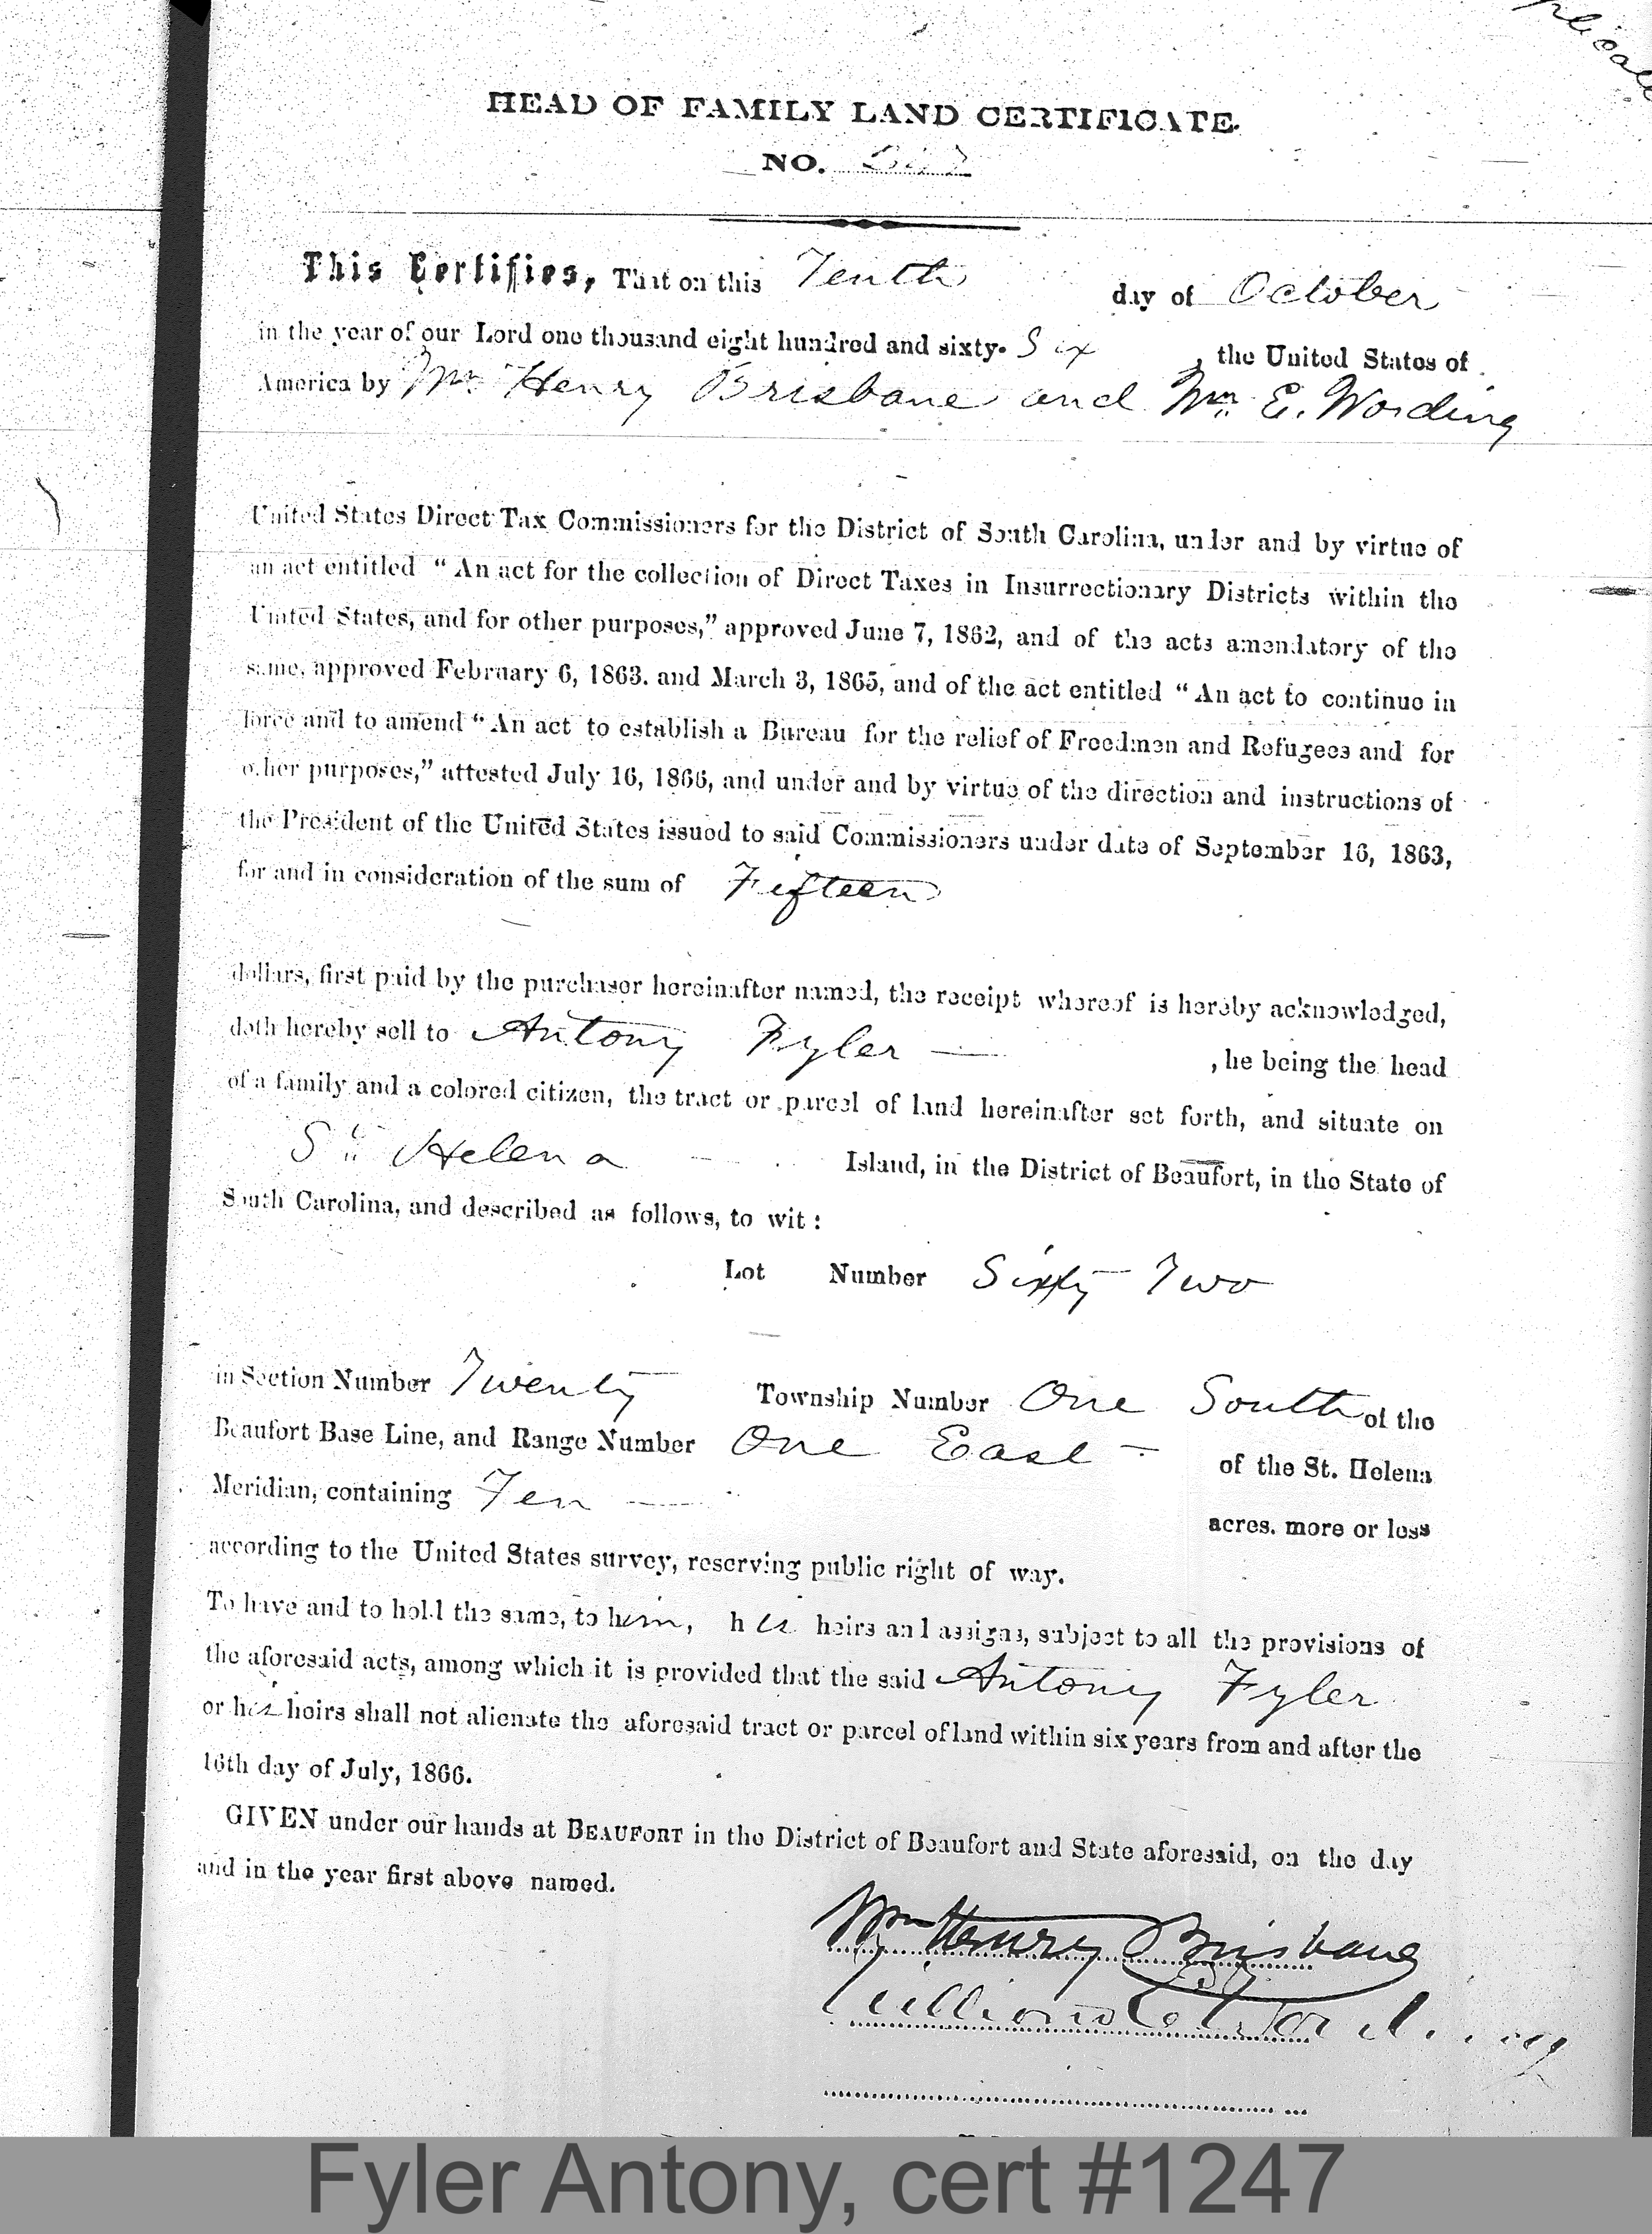 HEAD OF FAMILY LAND CERTIFICATE.
NO.
This Certifies, That on this Tenth day of October
in the year of our Lord one thousand eight hundred and sixty-Six, the United States of
America by Wm. Henry Brisbane and Wm. E. Wording
United States Direct Tax Commissioners for the District of South Carolina, under and by virtue of
an act entitled “An act for the collection of Direct Taxes in Insurrectionary Districts within the
United States, and for other purposes,” approved June 7, 1862, and of the acts amendatory of the
same, approved February 6, 1863. and March 3, 1865, and of the act entitled “An act to continue in
force and to amend “An act to establish a Bureau for the relief of Freedmen and Refugees and for
other purposes,” attested July 16, 1866, and under and by virtue of the direction and instructions of
the President of the United States issued to said Commissioners under date of September 16, 1863,
for and in consideration of the sum of Fifteen
dollars, first paid by the purchaser hereinafter named, the receipt whereof is hereby acknowledged,
doth hereby sell to Antony Fyler — , he being the head
of a family and a colored citizen, the tract or parcel of land hereinafter set forth, and situate on
St. Helena Island, in the District of Beaufort, in the State of
South Carolina, and described as follows, to wit:
Lot Number Sixty Two
in Section Number Twenty Township Number One South of the
Beaufort Base Line, and Range Number One East — of the St. Helena
Meridian, containing Ten — acres. more or less
according to the United States survey, reserving public right of way.
To have and to hold the same, to him, his heirs and assigns, subject to all the provisions of
the aforesaid acts, among which it is provided that the said Antony Fyler
or his heirs shall not alienate the aforesaid tract or parcel of land within six years from and after the
16th day of July, 1866.
GIVEN under our hands at BEAUFORT in the District of Beaufort and State aforesaid, on the day
and in the year first above named.
Wm Henry Brisbane
William E. Wording
Fyler Antony, cert #1247